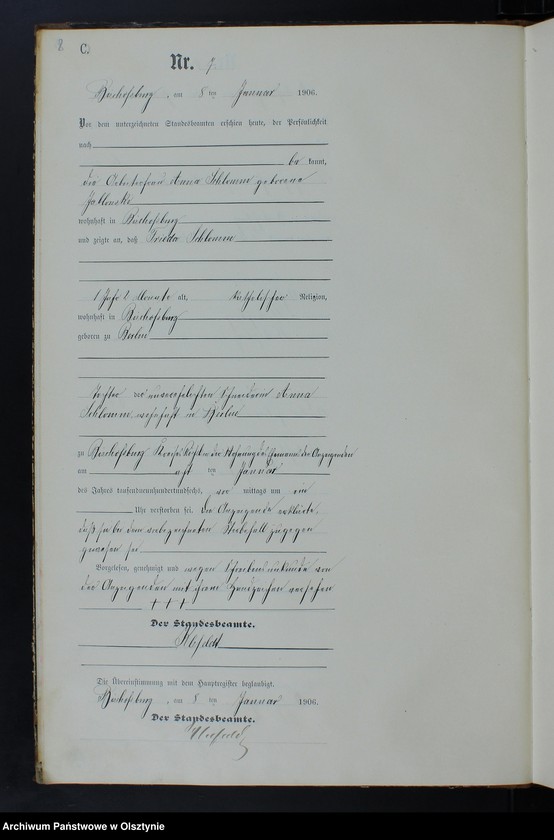 8 C.
Nr. 7
Bischofsburg, am 8 ten Januar 1906.
Vor dem unterzeichneten Standesbeamten erschien heute, der Persönlichkeit
nach
be kannt,
die Arbeiterfrau Anna Schlomm geborene
Jablonski
wohnhaft in Bischofsburg
und zeigte an, daß Frieda Schlomm
1 Jahr 2 Monate alt, katholischer Religion,
wohnhaft in Bischofsburg
geboren zu Berlin
Tochter der unverehelichten Schneiderin Anna
Schlomm wohnhaft in Berlin
zu Bischofsburg Kreises Rößel in der Wohnung des der Anzeigenden
am ten Januar
des Jahres tausendneunhundertundsechs, vor mittags um
Uhr verstorben sei. Die Anzeigende erklärte,
daß sie bei dem vorbezeichneten Sterbefall zugegen
gewesen sei
Vorgelesen, genehmigt und wegen Schreibensunkunde von
der Anzeigenden mit ihrem Handzeichen versehen
+ + +
Der Standesbeamte.
Die Übereinstimmung mit dem Hauptregister beglaubigt.
Bischofsburg, am 8 ten Januar 1906.
Der Standesbeamte.
Archiwum Państwowe w Olsztynie